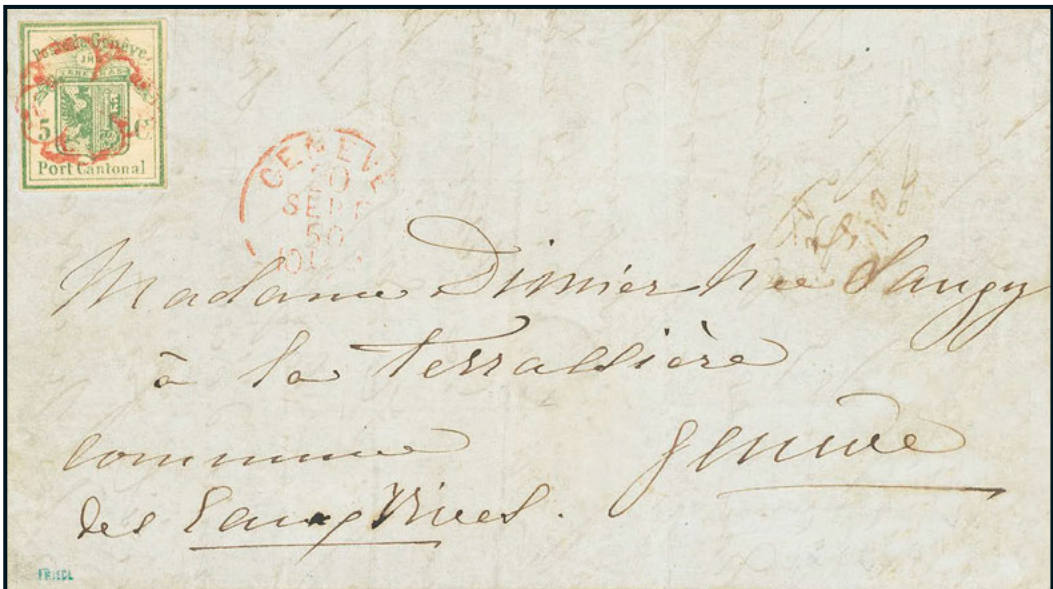 Poste de Genève
JHS
5 C.
Port Cantonal
GENEVE
20
SEPT
50
Madame Dimier Née Saugy
à la terrassière
commune Genève
des Eaux Vives.
FRIEDL